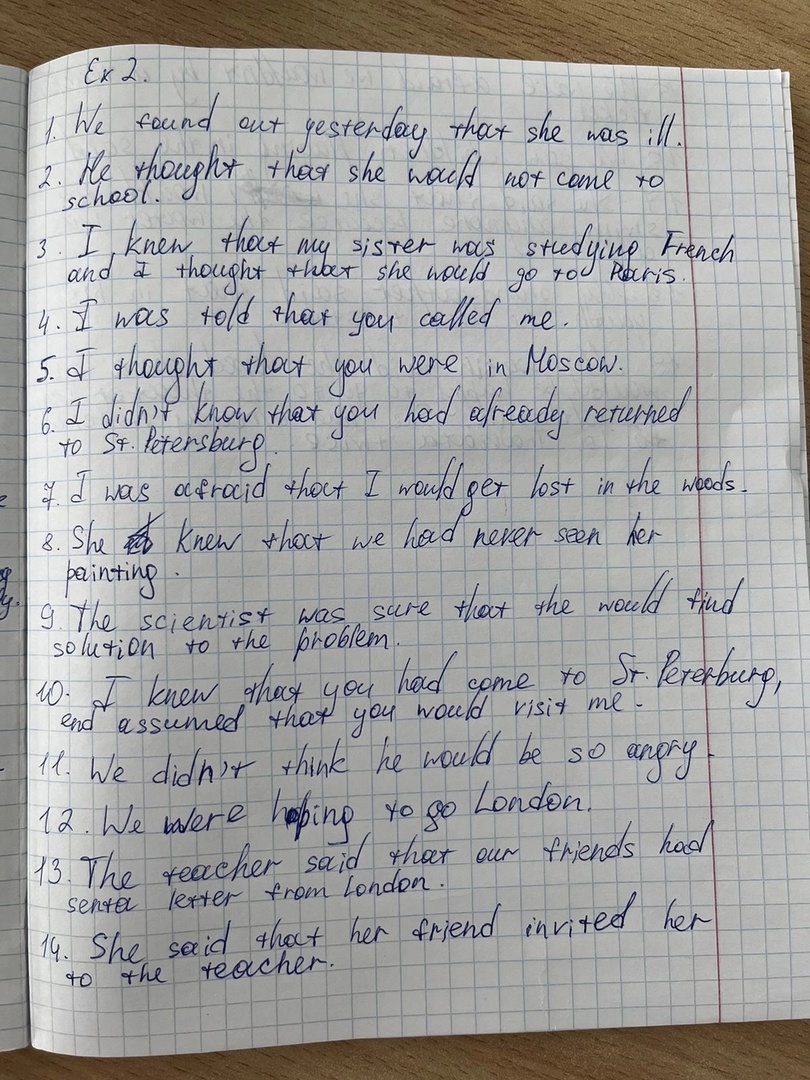 Ex 2.
1. We found out yesterday that she was ill.
2. He thought that she would not come to
school.
3. I knew that my sister was studying French
and I thought that she would go to Paris.
4. I was told that you called me.
5. I thought that you were in Moscow.
6. I didn't know that you had already returned
to St. Petersburg.
7. I was afraid that I would get lost in the woods.
8. She knew that we had never seen her
painting.
9. The scientist was sure that the would find
solution to the problem.
10. I knew that you had come to St. Peterburg,
end assumed that you would visit me.
11. We didn't think he would be so angry.
12. We were hoping to go London.
13. The teacher said that our friends had
senta letter from London.
14. She said that her friend invited her
to the teacher.